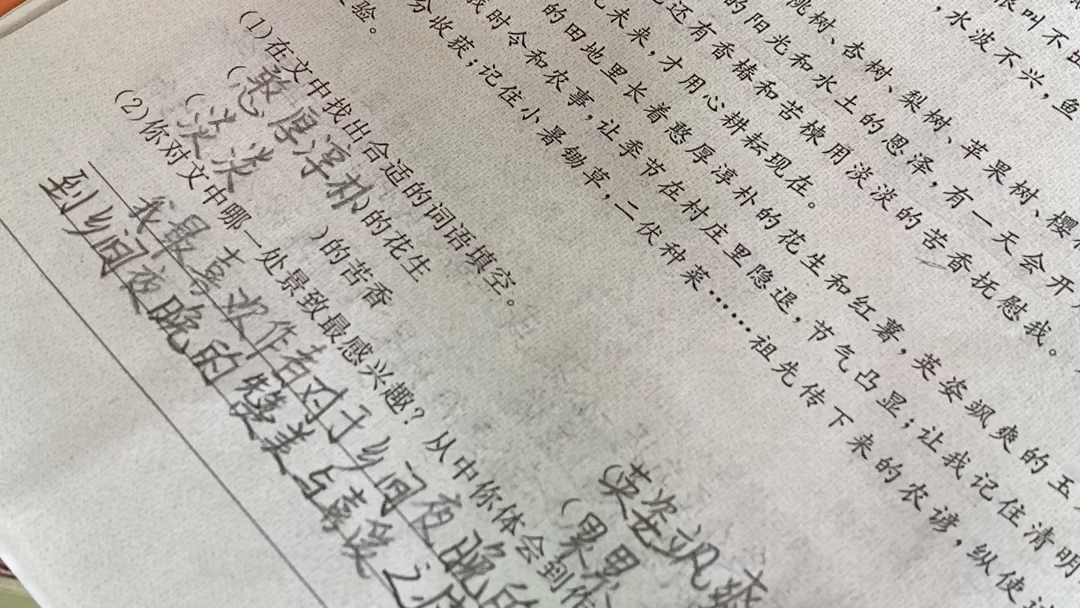 叫不出
,水波不兴,鱼
桃树、杏树、梨树、苹果树、樱
的阳光和水土的恩泽,有一天会开
还有香椿和苦楝用淡淡的苦香抚慰我。
未来,才用心耕耘现在。
的田地里长着憨厚淳朴的花生和红薯,英姿飒爽的玉
时令和农事,让季节在村庄里隐退,节气凸显;让我记住清明
分收获;记住小暑锄草,二伏种菜……祖先传下来的农谚,纵使
验。
(1)在文中找出合适的词语填空。
(憨厚淳朴)的花生 (英姿飒爽
(淡淡 )的苦香 (累累
(2)你对文中哪一处景致最感兴趣?从中你体会到作
我最喜欢作者对于乡间夜晚的
到乡间夜晚的赞美与喜爱之